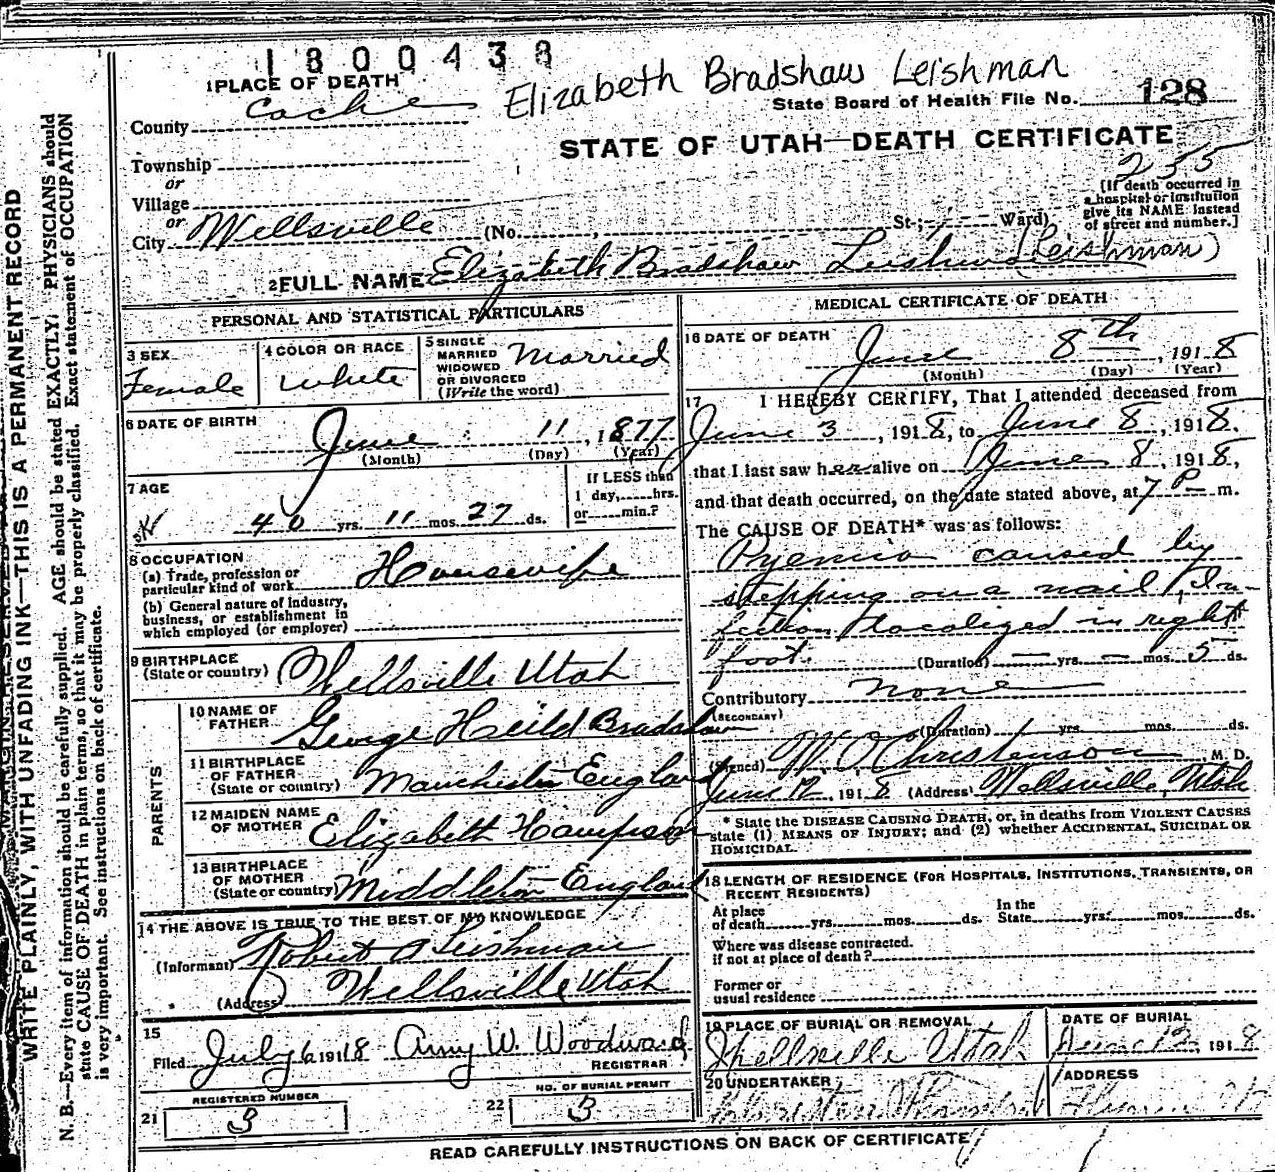 1 8 0 0 4 3 8
Elizabeth Bradshaw Leishman
1 PLACE OF DEATH
State Board of Health File No. 128
County Cache
STATE OF UTAH—DEATH CERTIFICATE
235
Township
or
Village
or
City Wellsville (No. , St.; Ward)
[If death occurred in
a hospital or institution
give its NAME instead
of street and number.]
2 FULL NAME Elizabeth Bradshaw Leishman (Leishman)
PERSONAL AND STATISTICAL PARTICULARS
3 SEX
Female
4 COLOR OR RACE
White
5 SINGLE
MARRIED
WIDOWED
OR DIVORCED
(Write the word)
Married
6 DATE OF BIRTH
June 11, 1877
(Month) (Day) (Year)
7 AGE
40 yrs. 11 mos. 27 ds.
If LESS than
1 day, hrs.
or min.?
8 OCCUPATION
(a) Trade, profession or
particular kind of work Housewife
(b) General nature of industry,
business, or establishment in
which employed (or employer)
9 BIRTHPLACE
(State or country) Wellsville Utah
PARENTS
10 NAME OF
FATHER George Heild Bradshaw
11 BIRTHPLACE
OF FATHER
(State or country) Manchester England
12 MAIDEN NAME
OF MOTHER Elizabeth Hampson
13 BIRTHPLACE
OF MOTHER
(State or country) Middleton England
14 THE ABOVE IS TRUE TO THE BEST OF MY KNOWLEDGE
(Informant) Robert A Leishman
(Address) Wellsville Utah
15
Filed July 6 1918 Amy W. Woodward
REGISTRAR
REGISTERED NUMBER
21 3
NO. OF BURIAL PERMIT
22 3
MEDICAL CERTIFICATE OF DEATH
16 DATE OF DEATH
June 8th, 1918
(Month) (Day) (Year)
17 I HEREBY CERTIFY, That I attended deceased from
June 3, 1918, to June 8, 1918.
that I last saw her alive on June 8, 1918,
and that death occurred, on the date stated above, at 7 P m.
The CAUSE OF DEATH* was as follows:
Pyemia caused by
stepping on a nail, In-
fection localized in right
foot. (Duration) — yrs. — mos. 5 ds.
Contributory none
(SECONDARY)
(Duration) yrs. mos. ds.
(Signed) W. O. Christenson M. D.
June 12, 1918 (Address) Wellsville, Utah
* State the DISEASE CAUSING DEATH, or, in deaths from VIOLENT CAUSES
state (1) MEANS OF INJURY; and (2) whether ACCIDENTAL, SUICIDAL OR
HOMICIDAL.
18 LENGTH OF RESIDENCE (FOR HOSPITALS, INSTITUTIONS, TRANSIENTS, OR
RECENT RESIDENTS)
At place
of death yrs. mos. ds.
In the
State yrs. mos. ds.
Where was disease contracted.
if not at place of death?
Former or
usual residence
19 PLACE OF BURIAL OR REMOVAL
Wellsville Utah
DATE OF BURIAL
June 12, 1918
20 UNDERTAKER
ADDRESS
READ CAREFULLY INSTRUCTIONS ON BACK OF CERTIFICATE
WRITE PLAINLY, WITH UNFADING INK—THIS IS A PERMANENT RECORD
N. B.—Every item of information should be carefully supplied. AGE should be stated EXACTLY. PHYSICIANS should
state CAUSE OF DEATH in plain terms, so that it may be properly classified. Exact statement of OCCUPATION
is very important. See instructions on back of certificate.